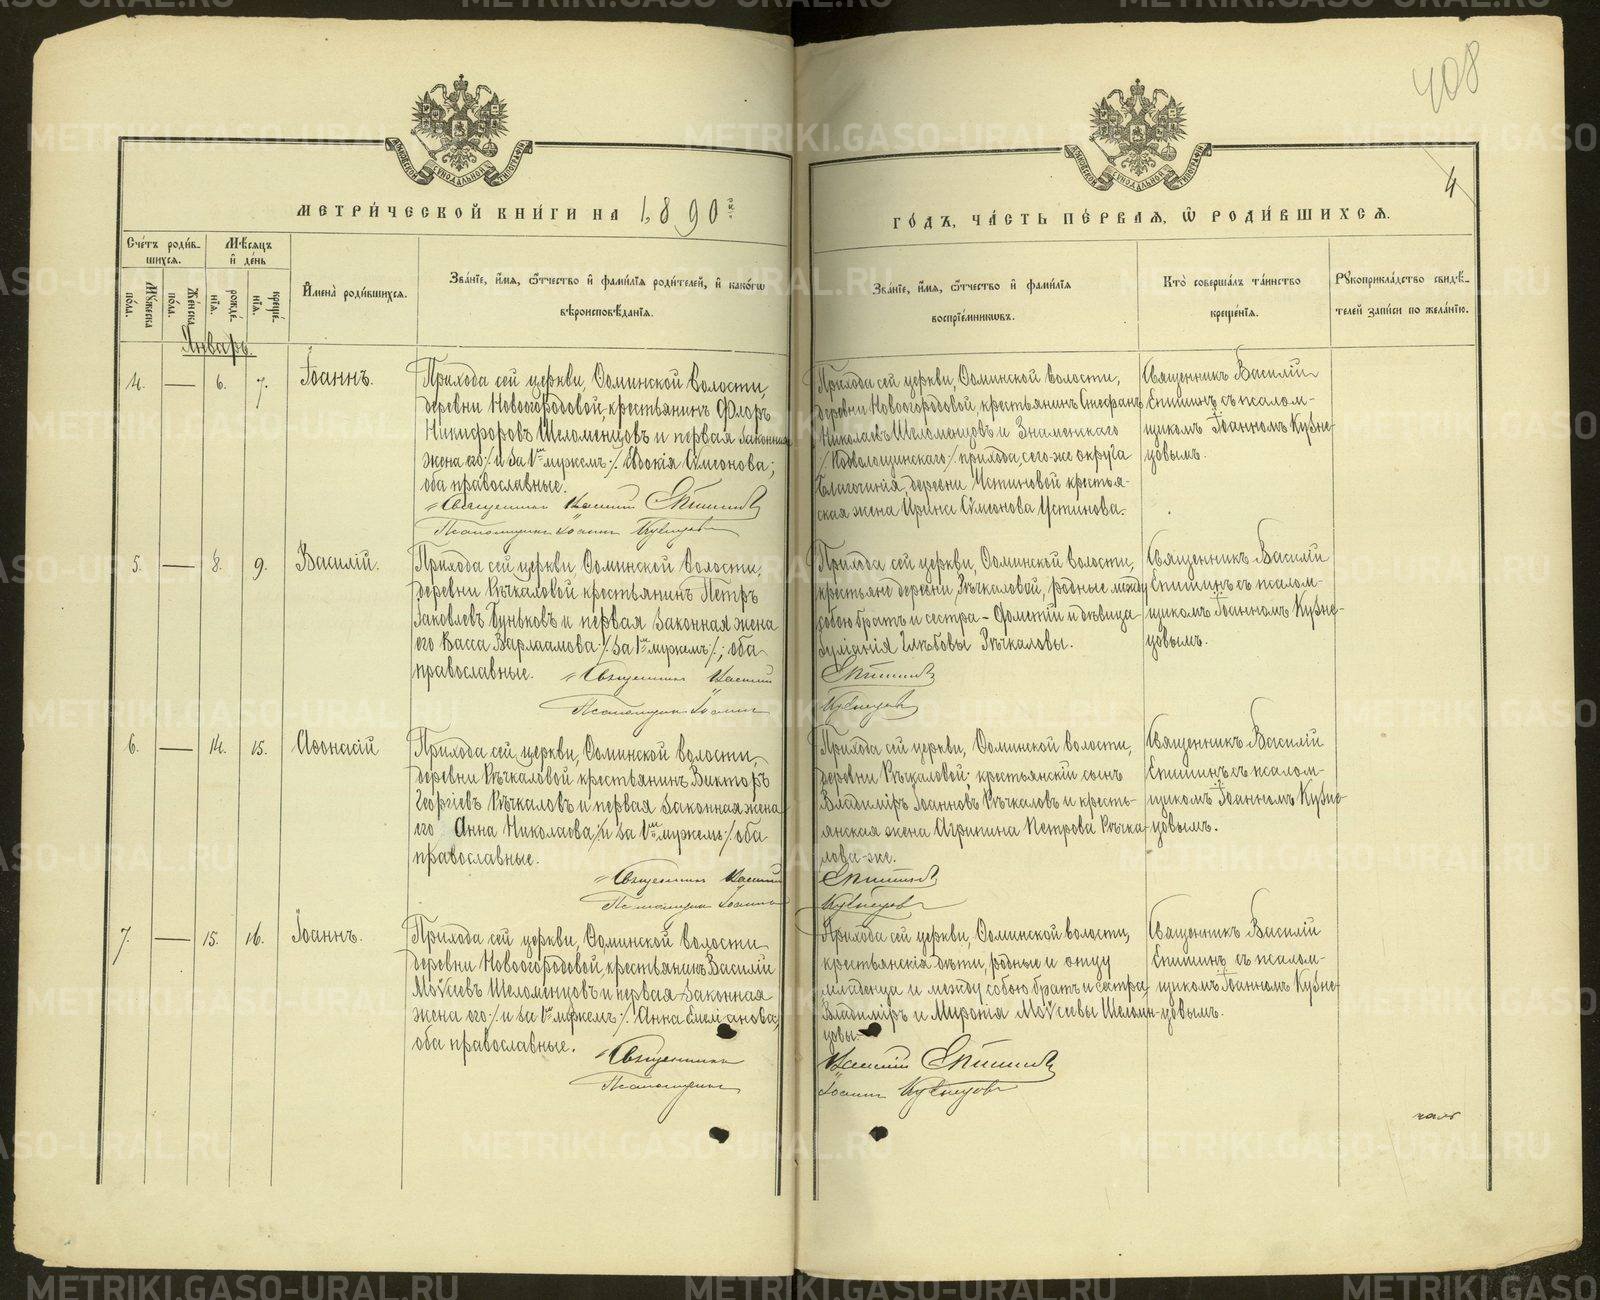 408
4
МЕТРИ́ЧЕСКОЙ КНИ́ГИ НА 1890й
ГО́ДЪ, ЧА́СТЬ ПЕ́РВАЯ, Ѡ҆ РОДИ́ВШИХСЯ.
Сче́тъ роди́в-
шихся.
Мꙋ́жеска
по́ла.
Же́нска
по́ла.
Мѣ́сяцъ
и҆ де́нь
рожде́-
нїя.
креще́-
нїя.
И҆мена̀ роди́вшихся.
Зва́нїе, и҆́мя, ѻ҆́тчество и҆ фами́лїя роди́телей, и҆ како́гѡ
вѣроисповѣ́данїя.
Зва́нїе, и҆́мя, ѻ҆́тчество и҆ фами́лїя
воспрїе́мникѡвъ.
Кто̀ соверша́лъ та́инство
креще́нїя.
Рꙋкоприкла́дство свидѣ́-
телей за́писи по жела́нїю.
Январь.
4. — 6. 7. Іоаннъ.
Прихода сей церкви, Ѳоминской волости,
деревни Новоогородовой, крестьянинъ Флоръ
Никифоровъ Шеломенцовъ и первая законная
жена его /: и за 1мъ мужемъ :/ Евдокія Сѵмеонова;
оба православные.
Священникъ Василій Епишинъ
Псаломщикъ Іоаннъ Кузнецовъ
Прихода сей церкви, Ѳоминской волости,
деревни Новоогородовой, крестьянинъ Стефанъ
Николаевъ Шеломенцовъ и Знаменскаго
прихода, сего-же округа
Благочинія, деревни Устиновой крестья-
ская жена Ирина Сѵмеонова Устинова.
Священникъ Василій
Епишинъ съ псалом-
щикомъ Іоанномъ Кузне-
цовымъ.
5. — 8. 9. Василій.
Прихода сей церкви, Ѳоминской волости,
деревни Рѣчкаловой крестьянинъ Петръ
Іаковлевъ Буньковъ и первая законная жена
его Васса Варлаамова /: за 1мъ мужемъ :/; оба
православные.
Священникъ Василій
Псаломщикъ Іоаннъ
Прихода сей церкви, Ѳоминской волости,
крестьяне деревни Рѣчкаловой, родные между
собою братъ и сестра – Фометій и дѣвица
Іуліанія Глѣбовы Рѣчкаловы.
Епишинъ
Кузнецовъ
Священникъ Василій
Епишинъ съ псалом-
щикомъ Іоанномъ Кузне-
цовымъ.
6. — 14. 15. Аѳонасій
Прихода сей церкви, Ѳоминской волости,
деревни Рѣчкаловой крестьянинъ Викторъ
Георгіевъ Рѣчкаловъ и первая законная жена
его Анна Николаева /: и за 1мъ мужемъ :/ оба
православные.
Священникъ Василій
Псаломщикъ Іоаннъ
Прихода сей церкви, Ѳоминской волости,
деревни Рѣчкаловой; крестьянскій сынъ
Владиміръ Іоанновъ Рѣчкаловъ и кресть-
янская жена Агрипина Петрова Рѣчка-
лова-же.
Епишинъ
Кузнецовъ
Священникъ Василій
Епишинъ съ псалом-
щикомъ Іоанномъ Кузне-
цовымъ.
7. — 15. 16. Іоаннъ.
Прихода сей церкви, Ѳоминской волости
деревни Новоогородовой, крестьянинъ Василій
Моѵсеевъ Шеломенцовъ и первая законная
жена его /: и за 1мъ мужемъ :/ Анна Емеліанова;
оба православные.
Священникъ
Псаломщикъ
Прихода сей церкви, Ѳоминской волости,
крестьянскія дѣти, родные и отцу
младенца и между собою братъ и сестра,
Владиміръ и Миронія Моѵсеевы Шеломен-
цовы.
Василій Епишинъ
Іоаннъ Кузнецовъ
Священникъ Василій
Епишинъ съ псалом-
щикомъ Іоанномъ Кузне-
цовымъ.
METRIKI.GASO-URAL.RU